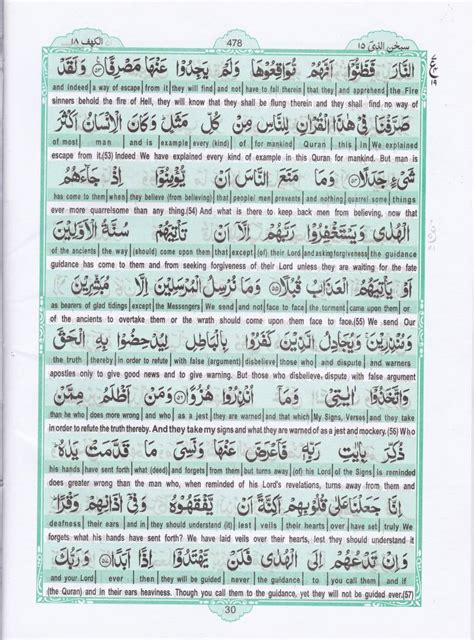 سبحن الذی ١٥
478
الکهف ١٨
النَّارَ فَظَنُّوْٓا اَنَّهُمْ مُّوَاقِعُوْهَا وَلَمْ يَجِدُوْا عَنْهَا مَصْرِفًا ۵۳ وَلَقَدْ
and indeed | a way of escape | from it | they will find | and not | have to fall therein | that they | and apprehend | the Fire
sinners behold the fire of Hell, they will know that they shall be flung therein and they shall find no way of
صَرَّفْنَا فِيْ هٰذَا الْقُرْاٰنِ لِلنَّاسِ مِنْ كُلِّ مَثَلٍ وَكَانَ الْاِنْسَانُ اَكْثَرَ
of most | man | and is | example | every (kind) | of | for mankind | Quran | this | In | We explained
escape from it.(53) Indeed We have explained every kind of example in this Quran for mankind. But man is
شَيْءٍ جَدَلًا ۵۴ وَمَا مَنَعَ النَّاسَ اَنْ يُّؤْمِنُوْٓا اِذْ جَآءَهُمُ
has come to them | when | they believe (from believing) | that | people | men | prevents | and nothing | quarrel some | things
ever more quarrelsome than any thing.(54) And what is there to keep back men from believing, now that
الْهُدٰى وَيَسْتَغْفِرُوْا رَبَّهُمْ اِلَّآ اَنْ تَاْتِيَهُمْ سُنَّةُ الْاَوَّلِيْنَ
of the ancients | the way | (should) come upon them | that | except | (of) their Lord | and asking forgiveness | the guidance
guidance has come to them and from seeking forgiveness of their Lord unless they are waiting for the fate
اَوْ يَاْتِيَهُمُ الْعَذَابُ قُبُلًا ۵۵ وَمَا نُرْسِلُ الْمُرْسَلِيْنَ اِلَّا مُبَشِّرِيْنَ
as bearers of glad tidings | except | the Messengers | We send | and not | face to face | the torment | came upon them | or
of the ancients to overtake them or the wrath should come upon them face to face.(55) We send Our
وَمُنْذِرِيْنَ وَيُجَادِلُ الَّذِيْنَ كَفَرُوْا بِالْبَاطِلِ لِيُدْحِضُوْا بِهِ الْحَقَّ
the truth | thereby | in order to refute | with false (argument) | disbelieve | those who | and dispute | and warners
apostles only to give good news and to give warning. But those who disbelieve, dispute, with false argument
وَاتَّخَذُوْٓا اٰيٰتِيْ وَمَآ اُنْذِرُوْا هُزُوًا ۵۶ وَمَنْ اَظْلَمُ مِمَّنْ
than he who | does more wrong | and who | as a jest | they are warned | and that which | My Signs, Verses | and they take
in order to refute the truth thereby. And they take my signs and what they are warned of as a jest and mockery. (56) Who
ذُكِّرَ بِاٰيٰتِ رَبِّهٖ فَاَعْرَضَ عَنْهَا وَنَسِيَ مَا قَدَّمَتْ يَدٰهُ
his hands | have sent forth | what (deed) | and forgets | from them | but turns away | (of) his Lord | of the Signs | is reminded
does greater wrong than the man who, when reminded of his Lord's revelations, turns away from them and
اِنَّا جَعَلْنَا عَلٰى قُلُوْبِهِمْ اَكِنَّةً اَنْ يَّفْقَهُوْهُ وَفِيْٓ اٰذَانِهِمْ وَقْرًا
deafness | their ears | and in | they should understand (it) | lest | veils | their hearts | over | have set | truly We
forgets what his hands have sent forth? We have laid veils over their hearts, lest they should understand it
وَاِنْ تَدْعُهُمْ اِلَى الْهُدٰى فَلَنْ يَّهْتَدُوْٓا اِذًا اَبَدًا ۵۷ وَرَبُّكَ
and your Lord | ever | then | they will be guided | never | the guidance | to | you call them | and if
(the Quran) and in their ears heaviness. Though you call them to the guidance, yet they will not be guided ever.(57)
30